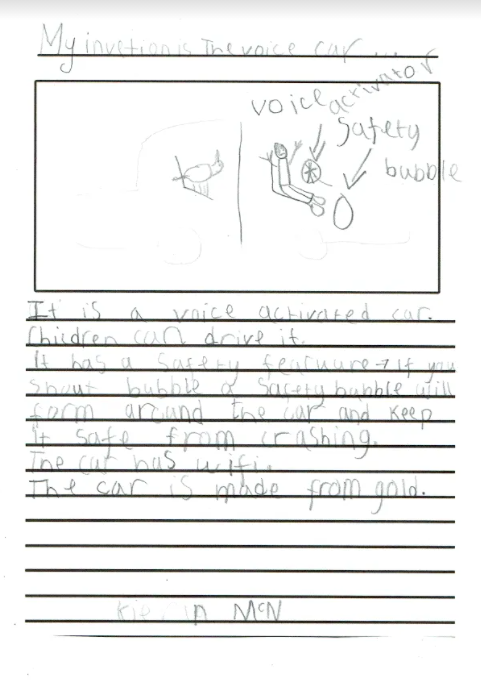 My invetion is The voice car ...
voice activator
safety
bubble
It is a voice activated car.
Children can drive it.
It has a safety fearuure → If you
shout bubble a safety bubble will
form around the car and keep
it safe from crashing.
The car has wifi.
The car is made from gold.
McN